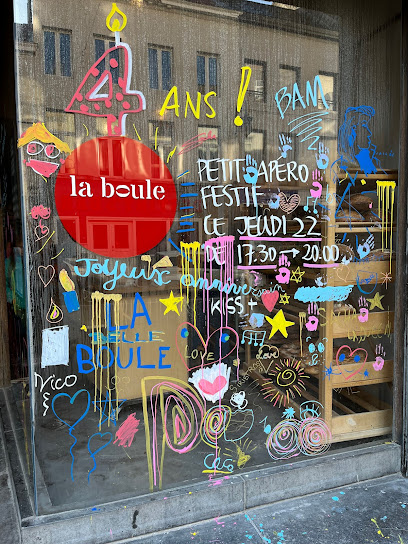 4 ANS !
BAM
la boule
PETIT APERO
FESTIF
CE JEUDI 22
DE 17.30 → 20.00
Joyeux anniversaire
KISS
LA
BELLE
BOULE
LOVE
Love
NICO